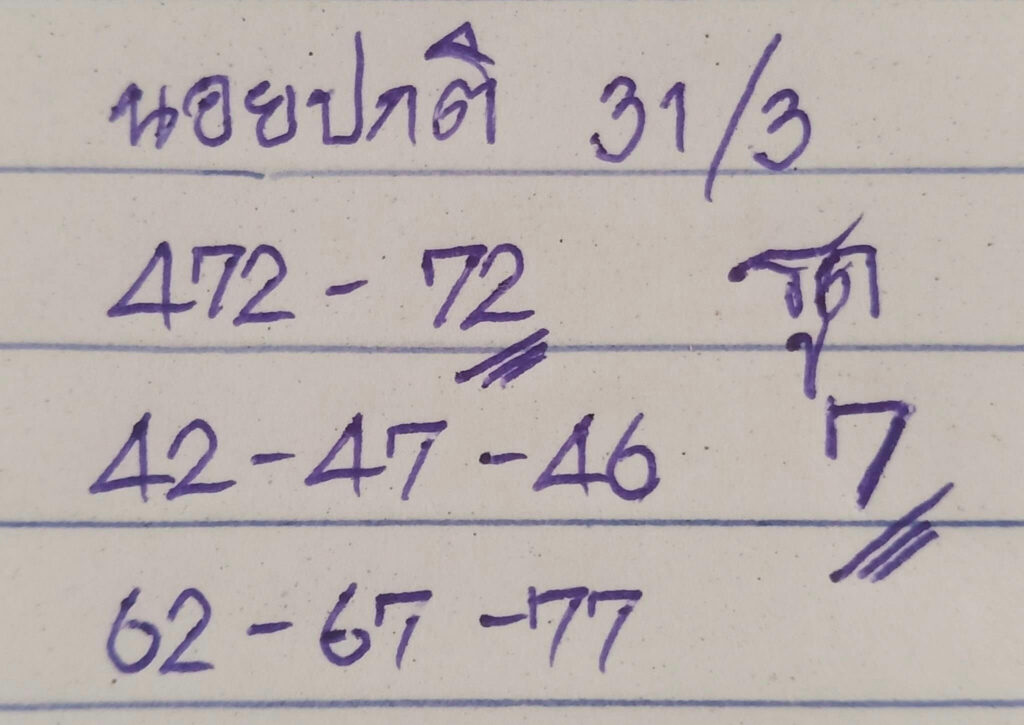 นอยปกติ 31/3
472 - 72 รูด
42 - 47 - 46 7
62 - 67 - 77